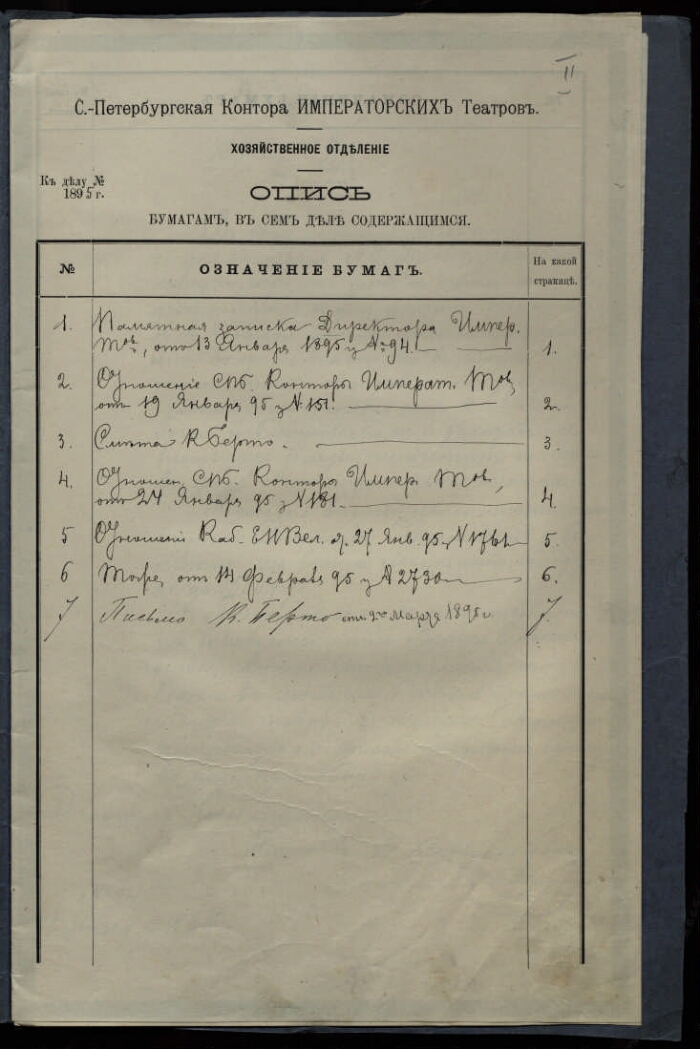 II
С.-Петербургская Контора ИМПЕРАТОРСКИХЪ Театровъ.
ХОЗЯЙСТВЕННОЕ ОТДѢЛЕНІЕ
Къ дѣлу №
1895 г.
ОПИСЬ
БУМАГАМЪ, ВЪ СЕМЪ ДѢЛѢ СОДЕРЖАЩИМСЯ.
№ ОЗНАЧЕНІЕ БУМАГЪ. На какой
страницѣ.
1. Памятная записка Директора Импер.
отъ 13 Января 1895 № 94. 1.
2. Отношеніе Спб. Конторы Императ.
отъ 19 Января 95 № 151. 2.
3. Смѣта К Берто. 3.
4. Отношен. Спб. Конторы Импер.
отъ 24 Января 95 № 181. 4.
5 Отношеніе Каб. ЕИВел. 27 Янв. 95 5.
6 отъ 14 Февраля 95 № 2730 6.
7 Письмо К. Берто отъ Марта 1895 г. 7.